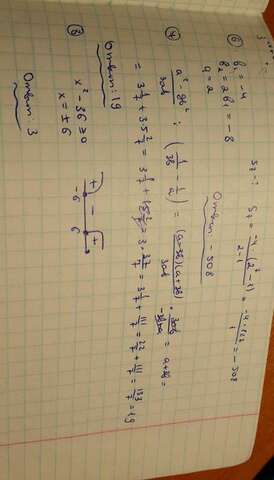 ⑥ b₁ = -4
b₂ = 2b₁ = -8
q = 2
S₇ - ?
S₇ = -4·(2⁷-1)/2-1 = -4·127/1 = -508
Ответ: -508
④ a²-9b²/3ab : (1/3b - 1/a) = (a-3b)(a+3b)/3ab · 3ab/a-3b = a+3b =
= 3 1/7 + 3·5 2/7 = 3 1/7 + = 3· 37/7 = 3 1/7 + 111/7 = 22/7 + 111/7 = 133/7 = 19
Ответ: 19
⑧ x² - 36 ≥ 0
x = ±6
+ - +
-6 6
Ответ: 3